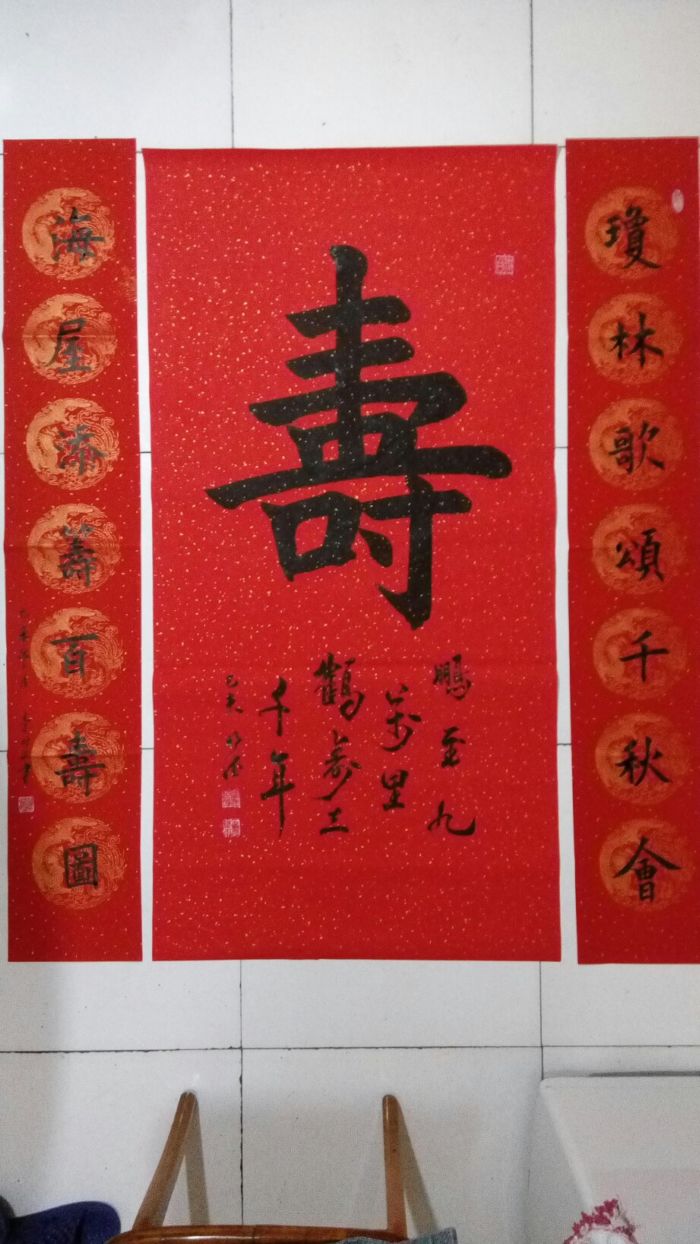 瓊林歌頌千秋會
壽
鵬至九
萬里
鶴壽三
千年
己亥
海屋添籌百壽圖